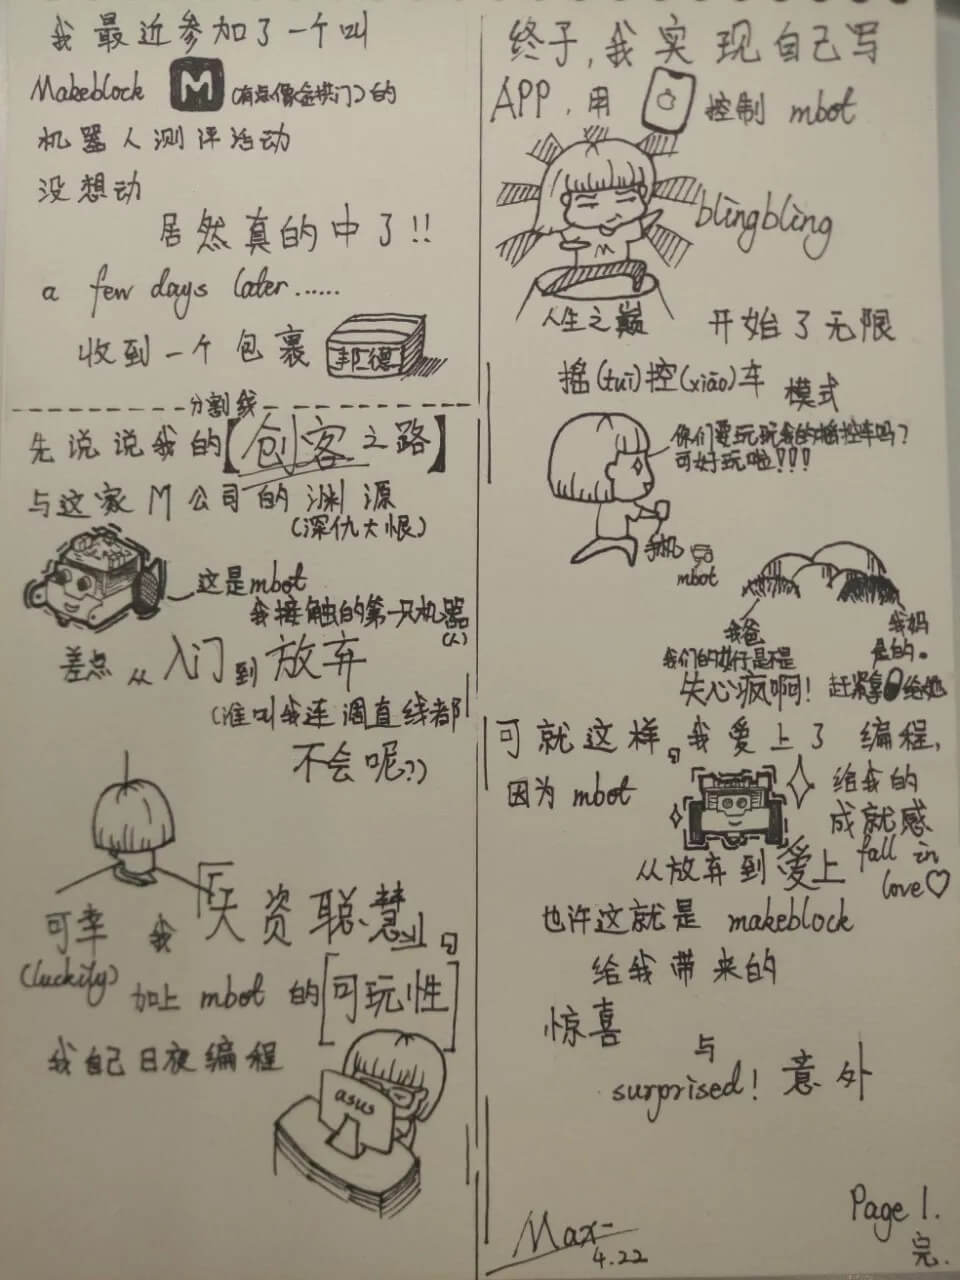 我最近参加了一个叫
Makeblock M (有点像金拱门)的
机器人测评活动
没想动
居然真的中了!!
a few days later......
收到一个包裹
邦德
分割线
先说说我的【创客之路】
与这家M公司的渊源
(深仇大恨)
这是mbot
我接触的第一只机器(人)
差点从入门到放弃
(谁叫我连调直线都
不会呢??)
可幸我『天资聪慧』。
(luckily)
加上mbot的[可玩性]
我自己日夜编程
asus
终于,我实现自己写
APP,用 控制mbot
blingbling
M
人生之巅
开始了无限
摇(tuī)控(xiāo)车
模式
你们要玩玩我的摇控车吗?
可好玩啦!!!
手机
mbot
我爸
我们的女仔是不是
失心疯啊!
我妈
是的。
赶紧拿 给她
可就这样。我爱上了编程,
因为mbot
给我的
成就感
从放弃到爱上
fall in
love♡
也许这就是makeblock
给我带来的
惊喜
与
surprised! 意外
Max
4.22
Page 1.
完.